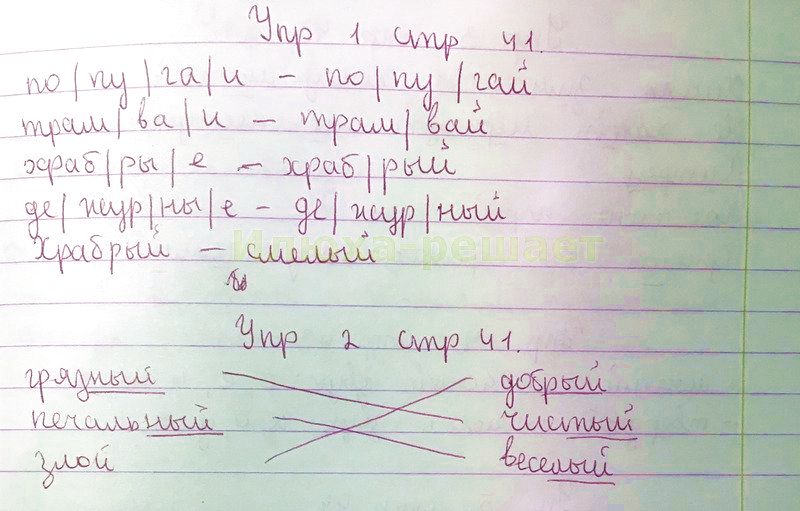 Упр 1 стр 41.
по/пу/га/и - по/пу/гай
трам/ва/и - трам/вай
храб/ры/е - храб/рый
де/жур/ны/е - де/жур/ный
Храбрый - смелый
Илюха-решает
Упр 2 стр 41.
грязный добрый
печальный чистый
злой веселый